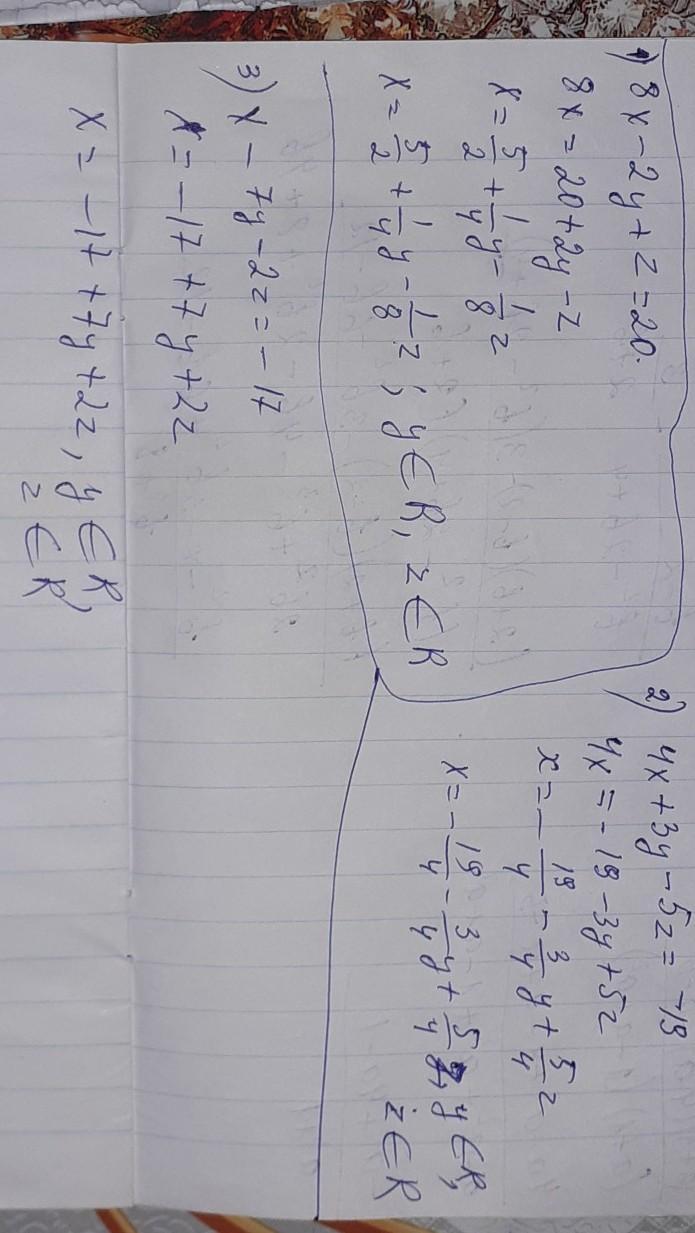 1) 8x - 2y + z = 20.
8x = 20 + 2y - z
x = 5/2 + 1/4 y - 1/8 z
x = 5/2 + 1/4 y - 1/8 z ; y ∈ R, z ∈ R
2) 4x + 3y - 5z = -19
4x = -19 - 3y + 5z
x = - 19/4 - 3/4 y + 5/4 z
x = - 19/4 - 3/4 y + 5/4 z, y ∈ R,
z ∈ R
3) x - 7y - 2z = -17
x = -17 + 7y + 2z
x = -17 + 7y + 2z, y ∈ R,
z ∈ R